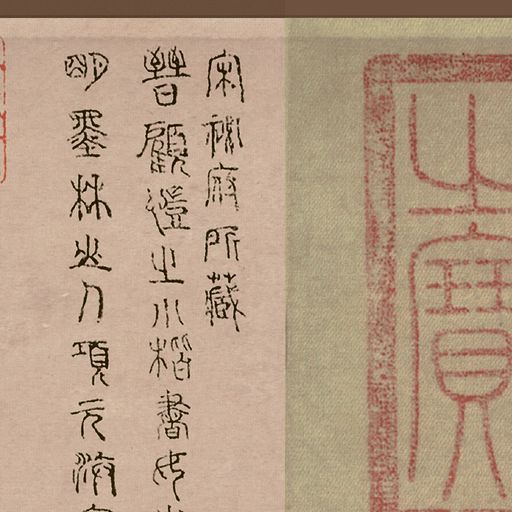 之寶
宋秘府所藏
晉顧愷之小楷書女
明墨林山人項元汴